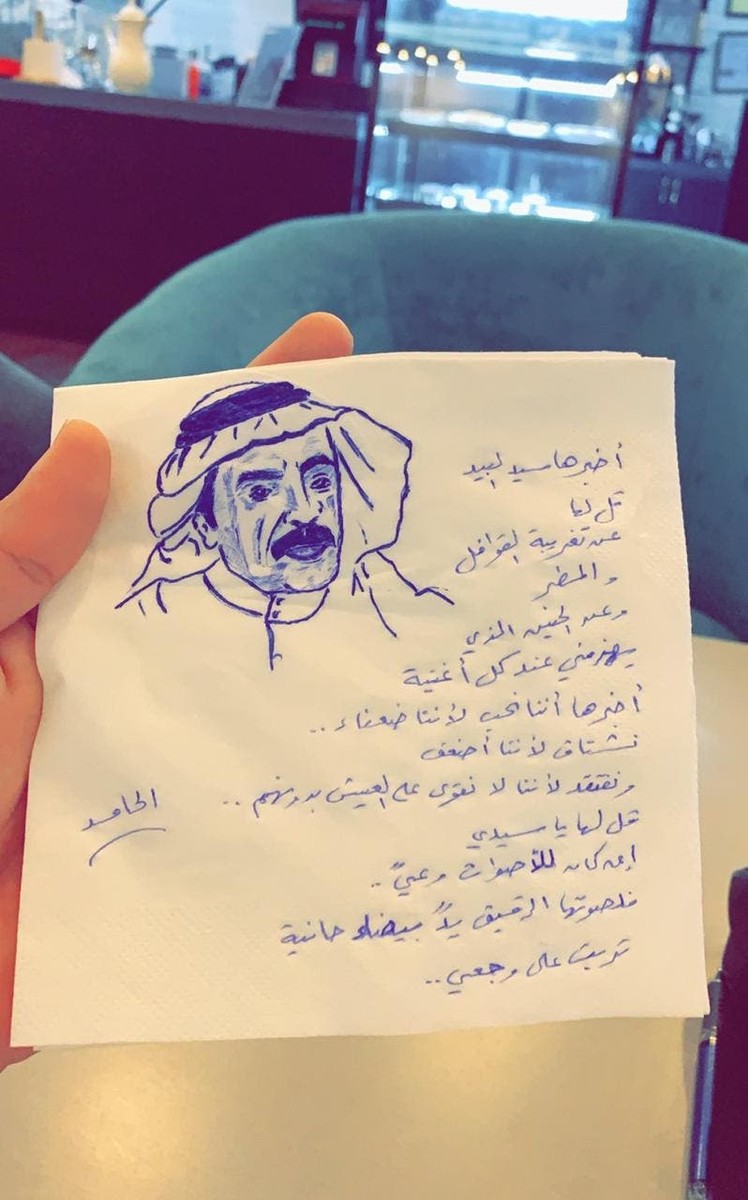 أخبرها سيد البيد
قل لها
عن تغريبة القوافل
والمطر
وعن الحنين الذي
يهزمني عند كل أغنية
أخبرها أننا نحب لأننا ضعفاء..
نشتاق لأننا أضعف
ونفتقد لأننا لا نقوى على العيش بدونهم ..
قل لها يا سيدي
إن كان للأصوات وعيً ..
فلصوتها الرقيق يدً بيضاء حانية
تربت على وجعي..
الحامد